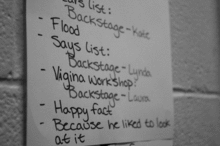 ars list:
Backstage-Kate
- Flood
- Says list:
Backstage-Lynda
- Vigina Workshop?
Backstage-Laura
- Happy fact
- Because he liked to look
at it